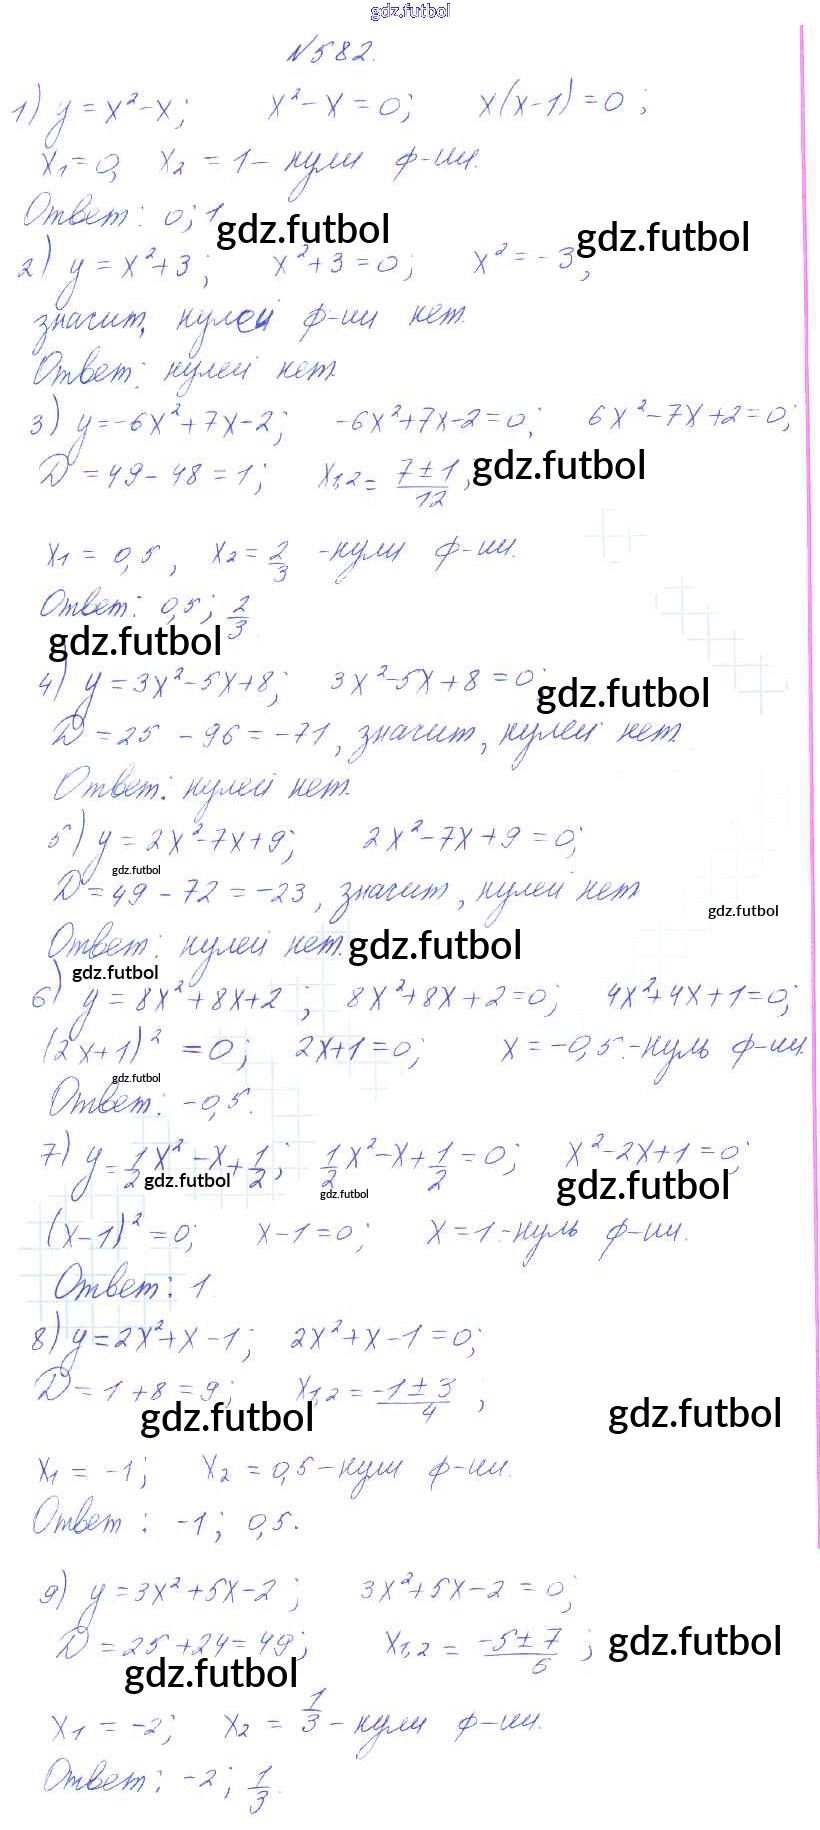 gdz.futbol
№582.
1) y = x² - x; x² - x = 0; x(x-1) = 0;
x₁ = 0, x₂ = 1 - нули ф-ии.
Ответ: 0; 1
gdz.futbol gdz.futbol
2) y = x² + 3; x² + 3 = 0; x² = -3,
значит, нулей ф-ии нет.
Ответ: нулей нет
3) y = -6x² + 7x - 2; -6x² + 7x - 2 = 0; 6x² - 7x + 2 = 0;
D = 49 - 48 = 1; x₁,₂ = (7 ± 1)/12, gdz.futbol
x₁ = 0,5, x₂ = 2/3 - нули ф-ии.
Ответ: 0,5; 2/3
gdz.futbol
4) y = 3x² - 5x + 8; 3x² - 5x + 8 = 0; gdz.futbol
D = 25 - 96 = -71, значит, нулей нет.
Ответ: нулей нет.
5) y = 2x² - 7x + 9; 2x² - 7x + 9 = 0;
gdz.futbol
D = 49 - 72 = -23, значит, нулей нет
gdz.futbol
Ответ: нулей нет. gdz.futbol
gdz.futbol
6) y = 8x² + 8x + 2; 8x² + 8x + 2 = 0; 4x² + 4x + 1 = 0;
(2x + 1)² = 0; 2x + 1 = 0; x = -0,5. - нуль ф-ии.
gdz.futbol
Ответ: -0,5.
7) y = 1/2 x² - x + 1/2; 1/2 x² - x + 1/2 = 0; x² - 2x + 1 = 0;
gdz.futbol gdz.futbol gdz.futbol
(x - 1)² = 0; x - 1 = 0; x = 1. - нуль ф-ии.
Ответ: 1
8) y = 2x² + x - 1; 2x² + x - 1 = 0;
D = 1 + 8 = 9; x₁,₂ = (-1 ± 3)/4,
gdz.futbol gdz.futbol
x₁ = -1; x₂ = 0,5 - нули ф-ии.
Ответ: -1; 0,5.
9) y = 3x² + 5x - 2; 3x² + 5x - 2 = 0;
D = 25 + 24 = 49; x₁,₂ = (-5 ± 7)/6; gdz.futbol
gdz.futbol
x₁ = -2; x₂ = 1/3 - нули ф-ии.
Ответ: -2; 1/3.